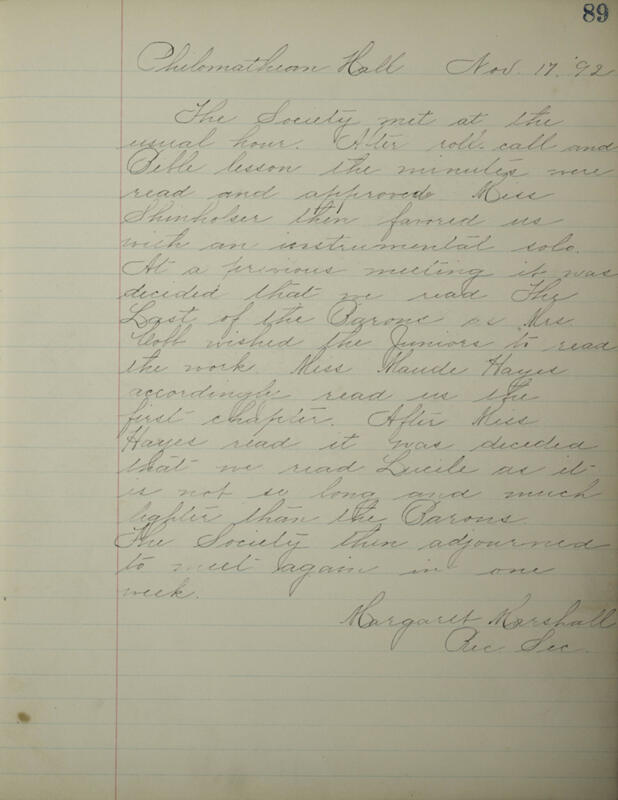 89
Philomathean Hall Nov. 17, '92
The Society met at the
usual hour. After roll-call and
Bible lesson the minutes were
read and approved. Miss
Shinholser then favored us
with an instrumental solo.
At a previous meeting it was
decided that we read The
Last of the Barons as Mrs
Cobb wished the Juniors to read
the work. Miss Maude Hayes
accordingly read us the
first chapter. After Miss
Hayes read it was decided
that we read Lucile as it
is not so long and much
lighter than the Barons.
The Society then adjourned
to meet again in one
week.
Margaret Marshall
Rec. Sec.